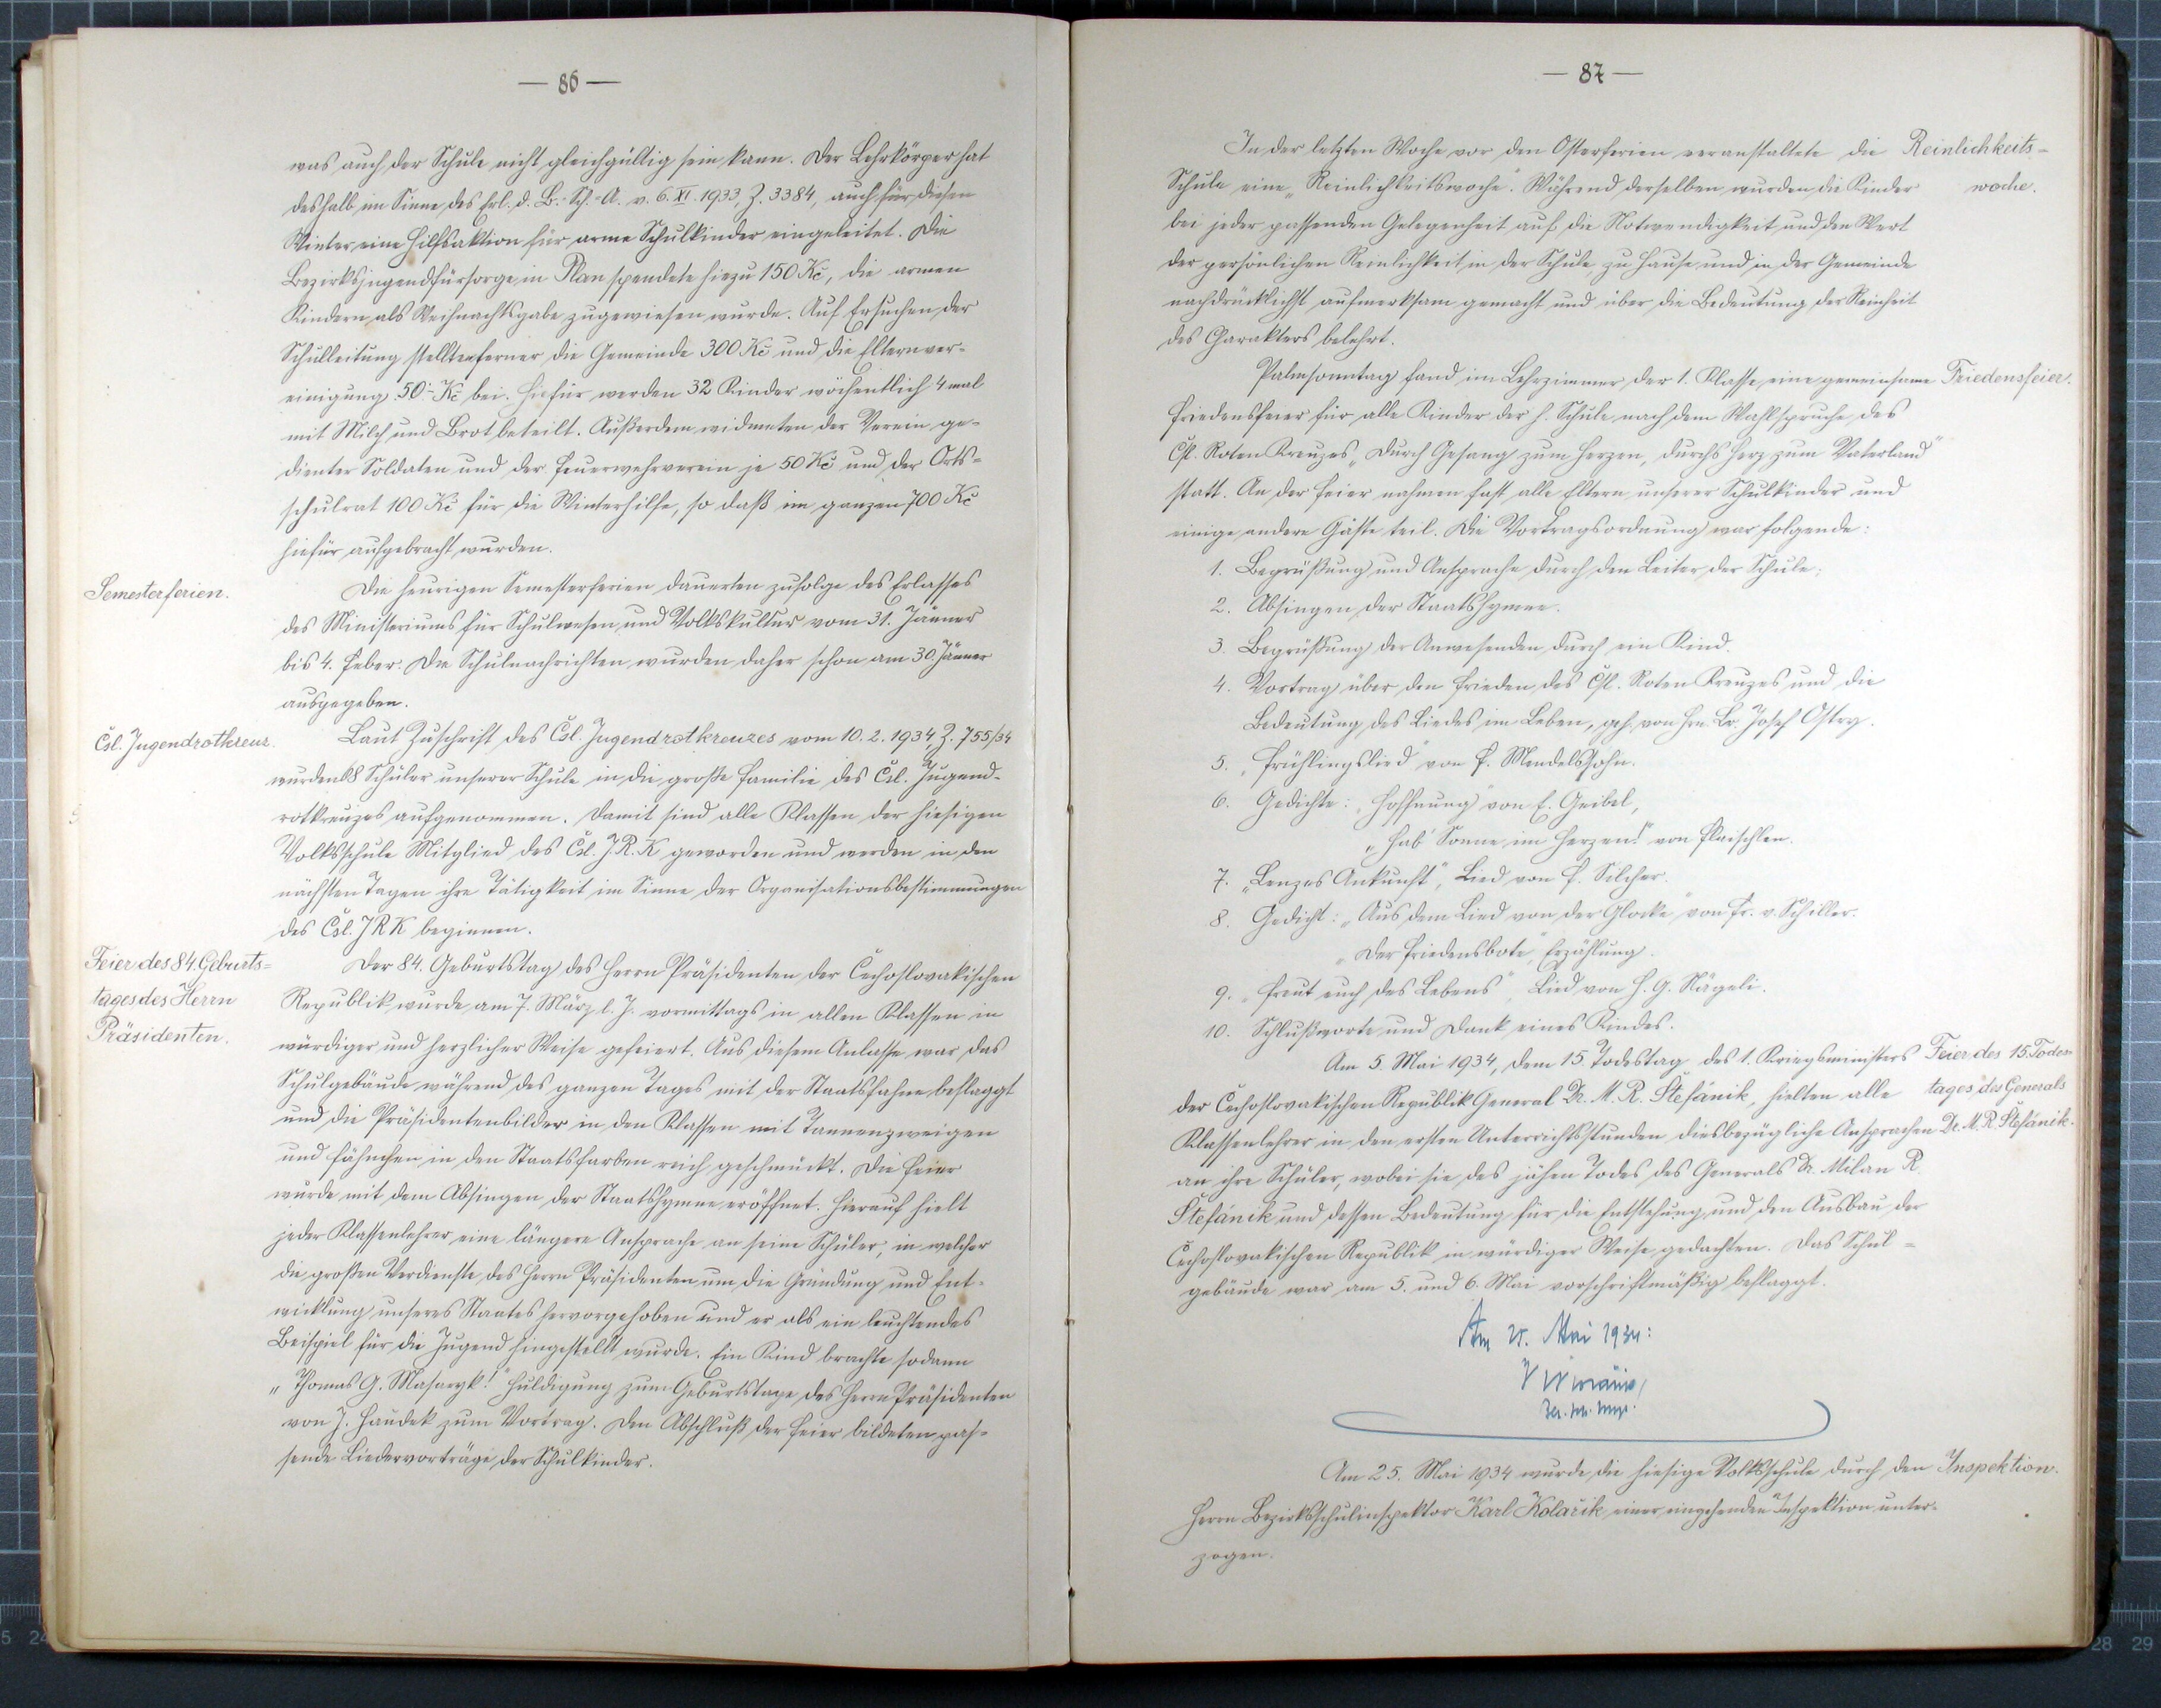 — 86 —
was auch der Schule nicht gleichgültig sein kann. Der Lehrkörper hat
deshalb im Sinne des Erl. d. B.-Sch.-A. v. 6. XI. 1933, Z. 3384, auch für diesen
Winter eine Hilfsaktion für arme Schulkinder eingeleitet. Die
Bezirksjugendfürsorge in Plan spendete hiezu 150 Kč, die armen
Kindern als Weihnachtsgabe zugewiesen wurde. Auf Ersuchen der
Schulleitung stellten ferner die Gemeinde 300 Kč und die Elternver-
einigung 50.- Kč bei. Hiefür werden 32 Kinder wöchentlich 4 mal
mit Milch und Brot beteilt. Außerdem widmeten der Verein ge-
dienter Soldaten und der Feuerwehrverein je 50 Kč und der Orts-
schulrat 100 Kč für die Winterhilfe, so daß im ganzen 700 Kč
hiefür aufgebracht wurden.
Semesterferien.
Die heurigen Semesterferien dauerten zufolge des Erlasses
des Ministeriums für Schulwesen und Volkskultur vom 31. Jänner
bis 4. Feber. Die Schulnachrichten wurden daher schon am 30. Jänner
ausgegeben.
Čsl. Jugendrotkreuz.
Laut Zuschrift des Čsl. Jugendrotkreuzes vom 10. 2. 1934, Z. 755/34
wurden 68 Schüler unserer Schule in die große Familie des Čsl. Jugend-
rotkreuzes aufgenommen. Damit sind alle Klassen der hiesigen
Volksschule Mitglied des Čsl. J. R. K geworden und werden in den
nächsten Tagen ihre Tätigkeit im Sinne der Organisationsbestimmungen
des Čsl. J R K beginnen.
Feier des 84. Geburts-
tages des Herrn
Präsidenten.
Der 84. Geburtstag des Herrn Präsidenten der Čechoslovakischen
Republik wurde am 7. März l. J. vormittags in allen Klassen in
würdiger und herzlicher Weise gefeiert. Aus diesem Anlasse war das
Schulgebäude während des ganzen Tages mit der Staatsfahne beflaggt
und die Präsidentenbilder in den Klassen mit Tannenzweigen
und Fähnchen in den Staatsfarben reich geschmückt. Die Feier
wurde mit dem Absingen der Staatshymne eröffnet. Hierauf hielt
jeder Klassenlehrer eine längere Ansprache an seine Schüler, in welcher
die großen Verdienste des Herrn Präsidenten um die Gründung und Ent-
wicklung unseres Staates hervorgehoben und er als ein leuchtendes
Beispiel für die Jugend hingestellt wurde. Ein Kind brachte sodann
„Thomas G. Masaryk!“ Huldigung zum Geburtstage des Herrn Präsidenten
von J. Haudek zum Vortrag. Den Abschluß der Feier bildeten pas-
sende Liedervorträge der Schulkinder.
— 87 —
In der letzten Woche vor den Osterferien veranstaltete die
Reinlichkeits-
Schule eine „Reinlichkeitswoche“. Während derselben wurden die Kinder
woche.
bei jeder passenden Gelegenheit auf die Notwendigkeit und den Wert
der persönlichen Reinlichkeit in der Schule, zu Hause und in der Gemeinde
nachdrücklichst aufmerksam gemacht und über die Bedeutung der Reinheit
des Charakters belehrt.
Palmsonntag fand im Lehrzimmer der 1. Klasse eine gemeinsame
Friedensfeier.
Friedensfeier für alle Kinder der h. Schule nach dem Wahlspruche des
Čsl. Roten Kreuzes „Durch Gesang zum Herzen, durchs Herz zum Vaterland“
statt. An der Feier nahmen fast alle Eltern unserer Schulkinder und
einige andere Gäste teil. Die Vortragsordnung war folgende:
1. Begrüßung und Ansprache durch den Leiter der Schule.
2. Absingen der Staatshymne.
3. Begrüßung der Anwesenden durch ein Kind.
4. Vortrag über den Frieden des Čsl. Roten Kreuzes und die
Bedeutung des Liedes im Leben, geh. von Hrn. Lr. Josef Ostry.
5. „Frühlingslied“ von F. Mendelssohn.
6. Gedichte: „Hoffnung“ von E. Geibel,
„Hab' Sonne im Herzen!“ von Flaischlen.
7. „Lenzes Ankunft“, Lied von F. Silcher.
8. Gedicht: „Aus dem Lied von der Glocke“ von Fr. v. Schiller.
„Der Friedensbote“, Erzählung.
9. „Freut euch des Lebens“, Lied von H. G. Nägeli.
10. Schlußworte und Dank eines Kindes.
Am 5. Mai 1934, dem 15. Todestag des 1. Kriegsministers
Feier des 15. Todes-
der Čechoslovakischen Republik General Dr. M. R. Štefánik, hielten alle
tages des Generals
Klassenlehrer in den ersten Unterrichtsstunden diesbezügliche Ansprachen
Dr. M. R. Štefánik.
an ihre Schüler, wobei sie des jähen Todes des Generals Dr. Milan R.
Štefánik und dessen Bedeutung für die Entstehung und den Ausbau der
Čechoslovakischen Republik in würdiger Weise gedachten. Das Schul-
gebäude war am 5. und 6. Mai vorschriftmäßig beflaggt.
Am 25. Mai 1934:
Am 25. Mai 1934 wurde die hiesige Volksschule durch den
Inspektion.
Herrn Bezirksschulinspektor Karl Kolařik einer eingehenden Inspektion unter-
zogen.